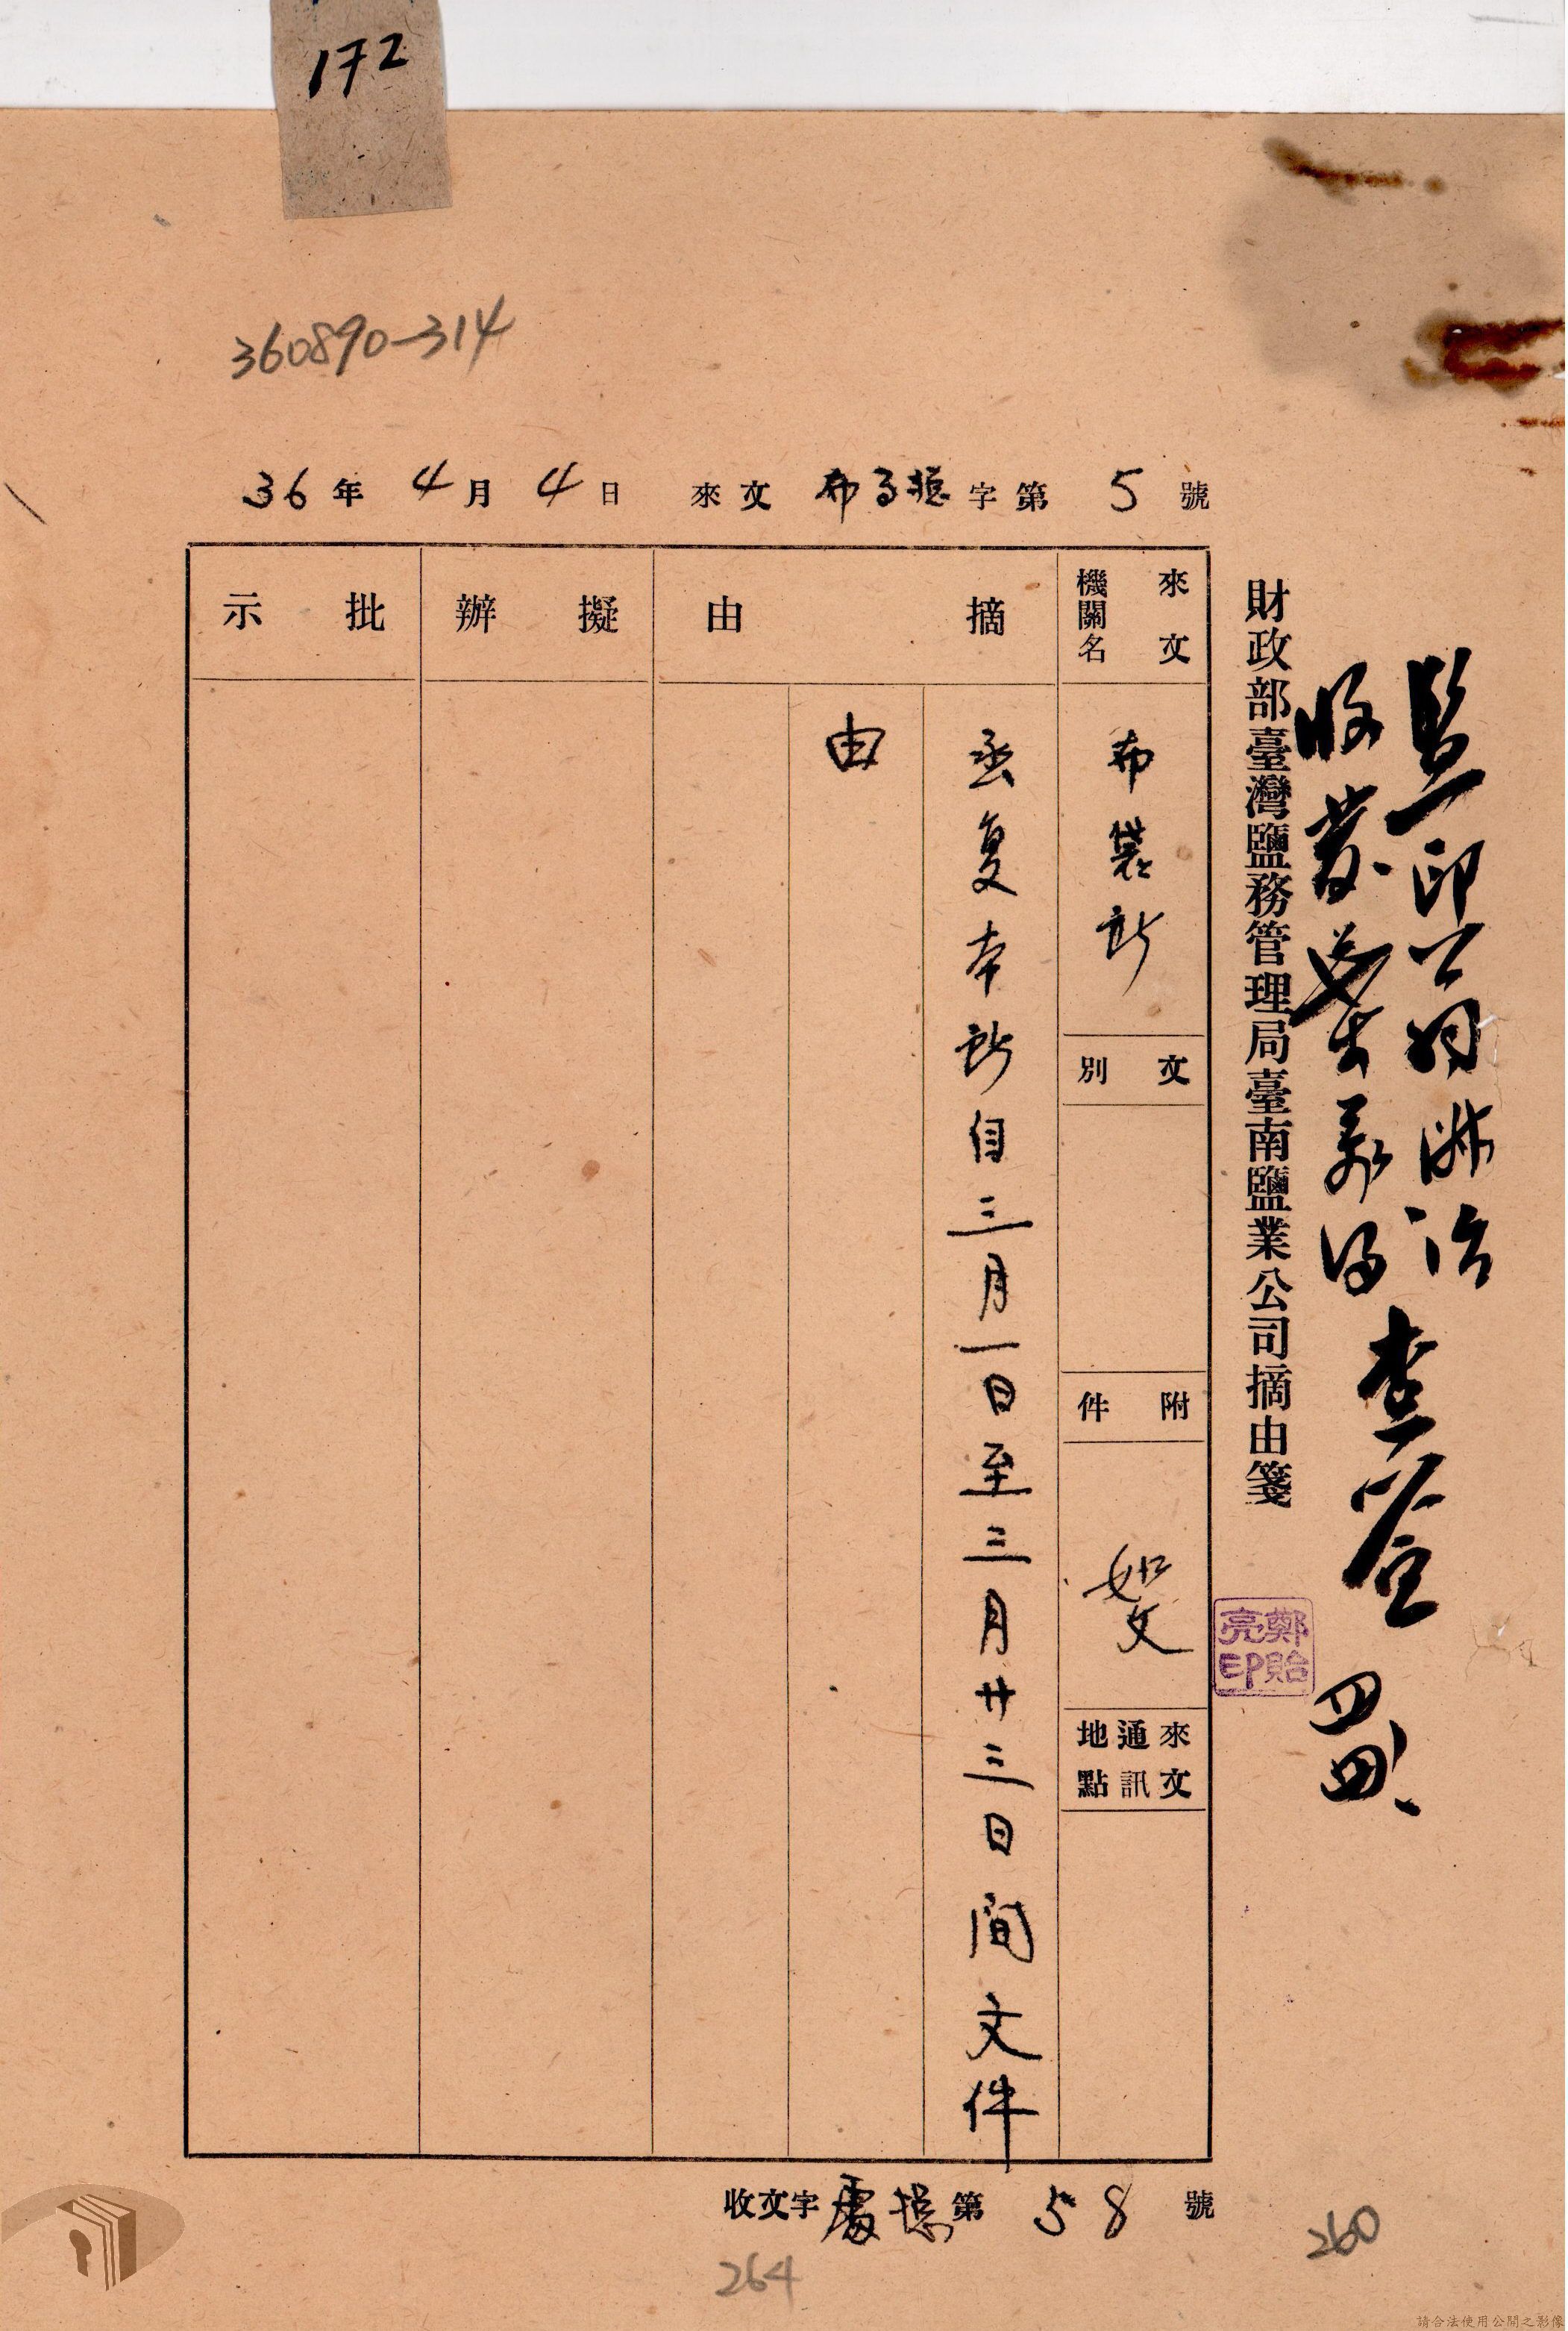 172
360890-314
36年4月4日 來文布 字第5號
財政部臺灣鹽務管理局臺南鹽業公司摘由箋
監印
收發
查簽
四
鄭貽亮印
來文機關名
布袋所
文別
附件
如文
來文通訊地點
摘由
丞复本所自三月一日至三月廿三日間文件
由
擬辦
批示
收文字 第58號
264
260
請合法使用公開之影像